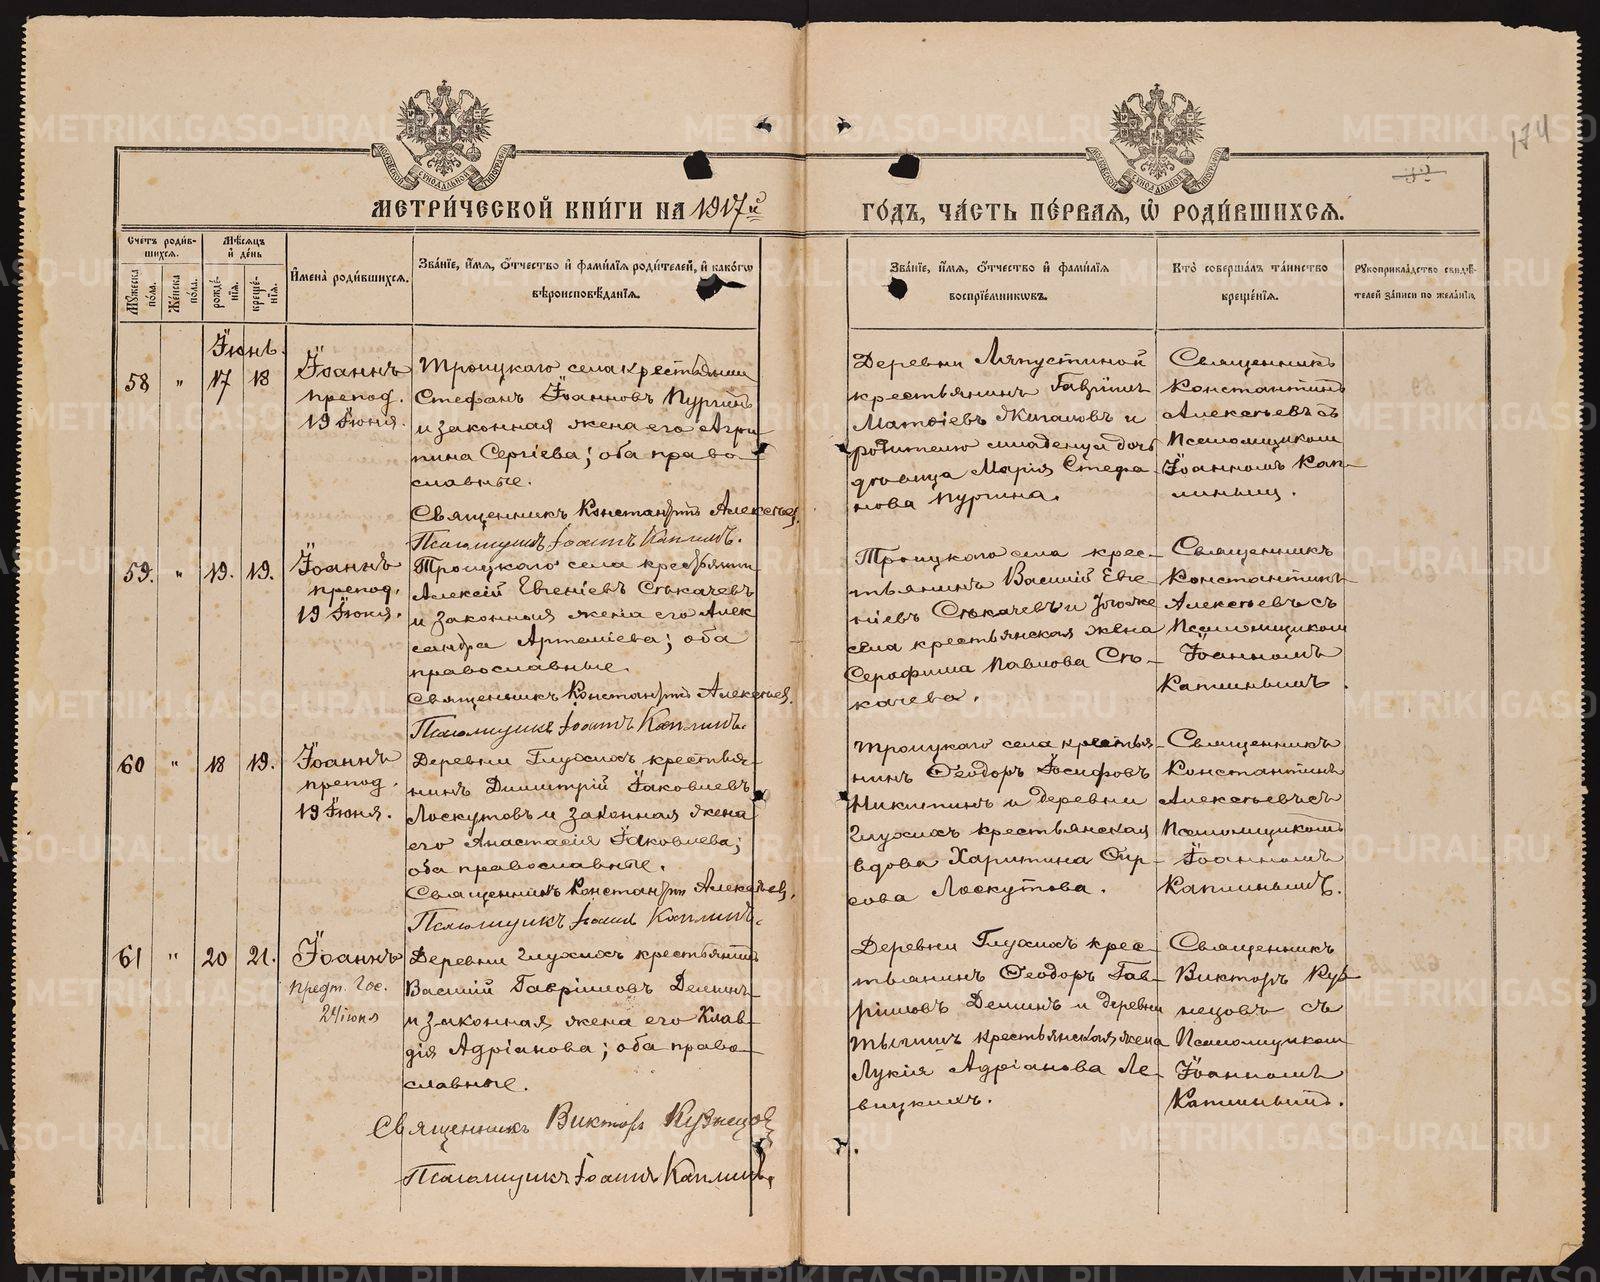 174
МЕТРИ́ЧЕСКОЙ КНИ́ГИ НА 1917й
ГО́ДЪ, ЧА́СТЬ ПЕ́РВАЯ, Ѡ҆ РОДИ́ВШИХСЯ.
Сче́тъ роди́в-
шихся.
Му́жеска
по́ла.
Же́нска
по́ла.
Мѣ́сяцъ
и҆ де́нь
рожде́-
нїя.
креще́-
нїя.
И҆мена̀ роди́вшихся.
Зва́нїе, и҆́мя, ѻ҆́тчество и҆ фами́лїя роди́телей, и҆ како́гѡ
вѣроисповѣ́данїя.
Зва́нїе, и҆́мя, ѻ҆́тчество и҆ фами́лїя
воспрїе́мникѡвъ.
Кто̀ соверша́лъ та́инство
креще́нїя.
Рукоприкла́дство свидѣ́-
телей за́писи по жела́нїю.
Іюнь.
58 " 17 18
Іоаннъ
препод.
19 Іюня.
Троицкаго села крестьянин
Стефанъ Іоанновъ Пургинъ
и законная жена его Агри
пина Сергіева; оба право-
славные.
Священникъ Константинъ Алексѣев
Псаломщикъ Іоаннъ Каплинъ.
Деревни Ляпустиной
крестьянинъ Гавріилъ
Матѳіевъ Жигаловъ и
родителю младенца дочь
дѣвица Марія Стефа-
нова Пургина.
Священникъ
Константинъ
Алексѣевъ съ
Псаломщикомъ
Іоанномъ Кап-
линымъ.
59. " 19. 19.
Іоаннъ
препод.
19 Іюня.
Троицкаго села крестьянин
Алексій Евгеніевъ Сѣкачевъ
и законная жена его Алек
сандра Артеміева; оба
православные.
Священникъ Константинъ Алексѣев.
Псаломщикъ Іоаннъ Каплинъ.
Троицкаго села крес-
тьянинъ Василій Евге
ніевъ Сѣкачевъ и того же
села крестьянская жена
Серафима Павлова Сѣ-
качева.
Священникъ
Константинъ
Алексѣевъ съ
Псаломщикомъ
Іоанномъ
Каплинымъ.
60 " 18 19.
Іоаннъ
препод.
19 Іюня.
Деревни Глухихъ крестья-
нинъ Димитрій Іаковлевъ
Лоскутовъ и законная жена
его Анастасія Іаковлева;
оба православные.
Священникъ Константинъ Алексѣев.
Псаломщикъ Іоаннъ Каплинъ.
Троицкаго села крестья-
нинъ Ѳеодоръ Іосифовъ
Никитинъ и деревни
Глухихъ крестьянская
вдова Харитина Фир-
сова Лоскутова.
Священникъ
Константинъ
Алексѣевъ съ
Псаломщикомъ
Іоанномъ
Каплинымъ.
61 " 20 21.
Іоаннъ
Предт. Гос.
24 іюня
Деревни Глухихъ крестьянинъ
Василій Гавріиловъ Деминъ
и законная жена его Клав-
дія Адріанова; оба право-
славные.
Священникъ Викторъ Кузнецов
Псаломщикъ Іоаннъ Каплинъ.
Деревни Глухихъ крес-
тьянинъ Ѳеодоръ Гав-
ріиловъ Деминъ и деревни
крестьянская жена
Лукія Адріанова Ле-
вицкихъ.
Священникъ
Викторъ Куз-
нецовъ съ
Псаломщикомъ
Іоанномъ
Каплинымъ.
METRIKI.GASO-URAL.RU